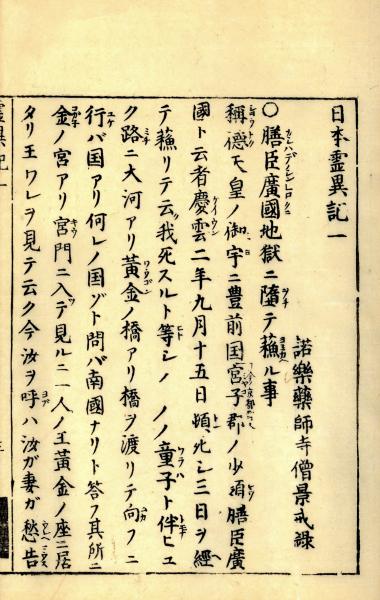 日本霊異記一
諾樂藥師寺僧景戒録
〇膳臣廣國地獄ニ隨テ蘓ル事
稱德天皇ノ御宇ニ豊前国宮子郡ノ少領膳臣廣
國ト云者慶雲二年九月十五日頓ニ死シ三日ヲ經
テ蘓リテ云我死スルト等シノ ノノ童子ト伴ヒユ
ク路ニ大河アリ黃金ノ橋アリ橋ヲ渡リテ向フニ
行バ国アリ何レノ国ゾト問バ南國ナリト答フ其所ニ
金ノ宮アリ宮門ニ入デ見ルニ一人ノ王黃金ノ座ニ居
タリ王ワレヲ見テ云ク今汝ヲ呼ハ汝ガ妻ガ愁告
霊異記一